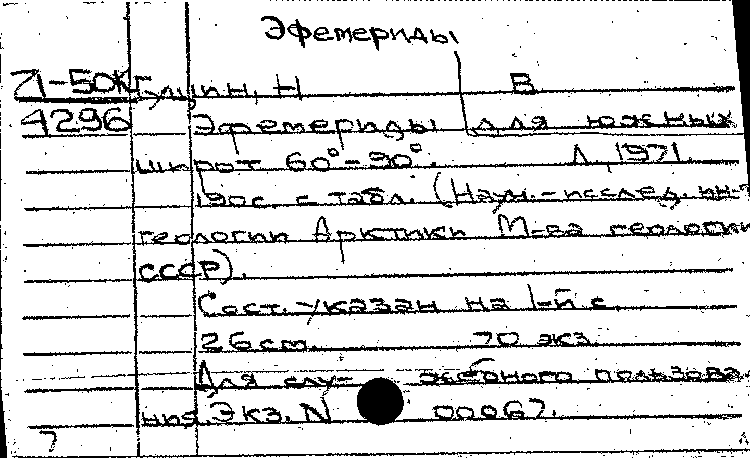 Эфемериды
71-50КГ
4296
Гущин, Н В
Эфемериды для южных
широт 60°-90°. Л., 1971.
190с. с табл. (Науч.-исслед. ин-т
геологии Арктики М-ва геологии
СССР).
Сост. указан на 1-й с.
26см. 70 экз.
Для слу- жебного пользова-
ния. Экз. N 00067.
7